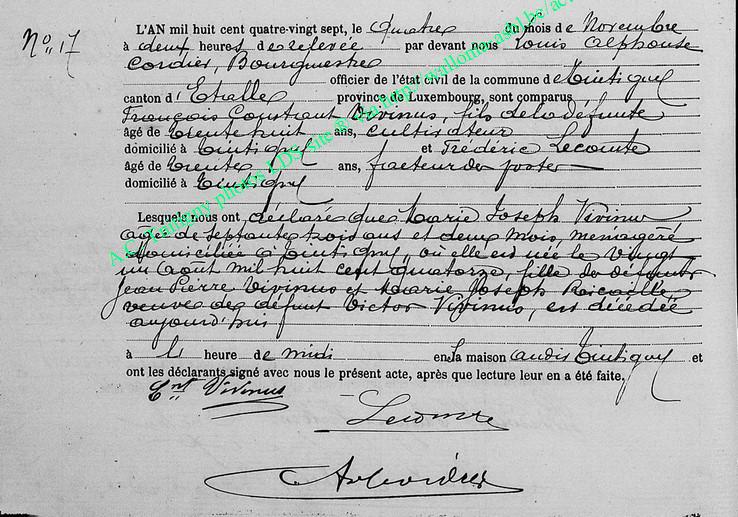 N° 17
L'AN mil huit cent quatre-vingt sept, le quatre du mois de Novembre
à deux heures de relevée par devant nous Louis Alphonse
Cordier, Bourgmestre
officier de l'état civil de la commune de Tintigny
canton d'Etalle province de Luxembourg, sont comparus
François Constant Vivinus, fils de la défunte
âgé de trente huit ans, cultivateur
domicilié à Tintigny et Fréderic Lecomte
âgé de trente ans, facteur des postes
domicilié à Tintigny
Lesquels nous ont déclaré que Marie Joseph Vivinus
agée de septante trois ans et deux mois, menagère
domiciliée à Tintigny, où elle est née le vingt
un Août mil huit cent quatorze, fille de défunts
Jean Pierre Vivinus et Marie Joseph
veuve de défunt Victor Vivinus, est décédée
aujourd'hui
à heure de midi en la maison audit Tintigny et
ont les déclarants signé avec nous le présent acte, après que lecture leur en a été faite.
Cnt Vivinus
Lecomte
A Cordier